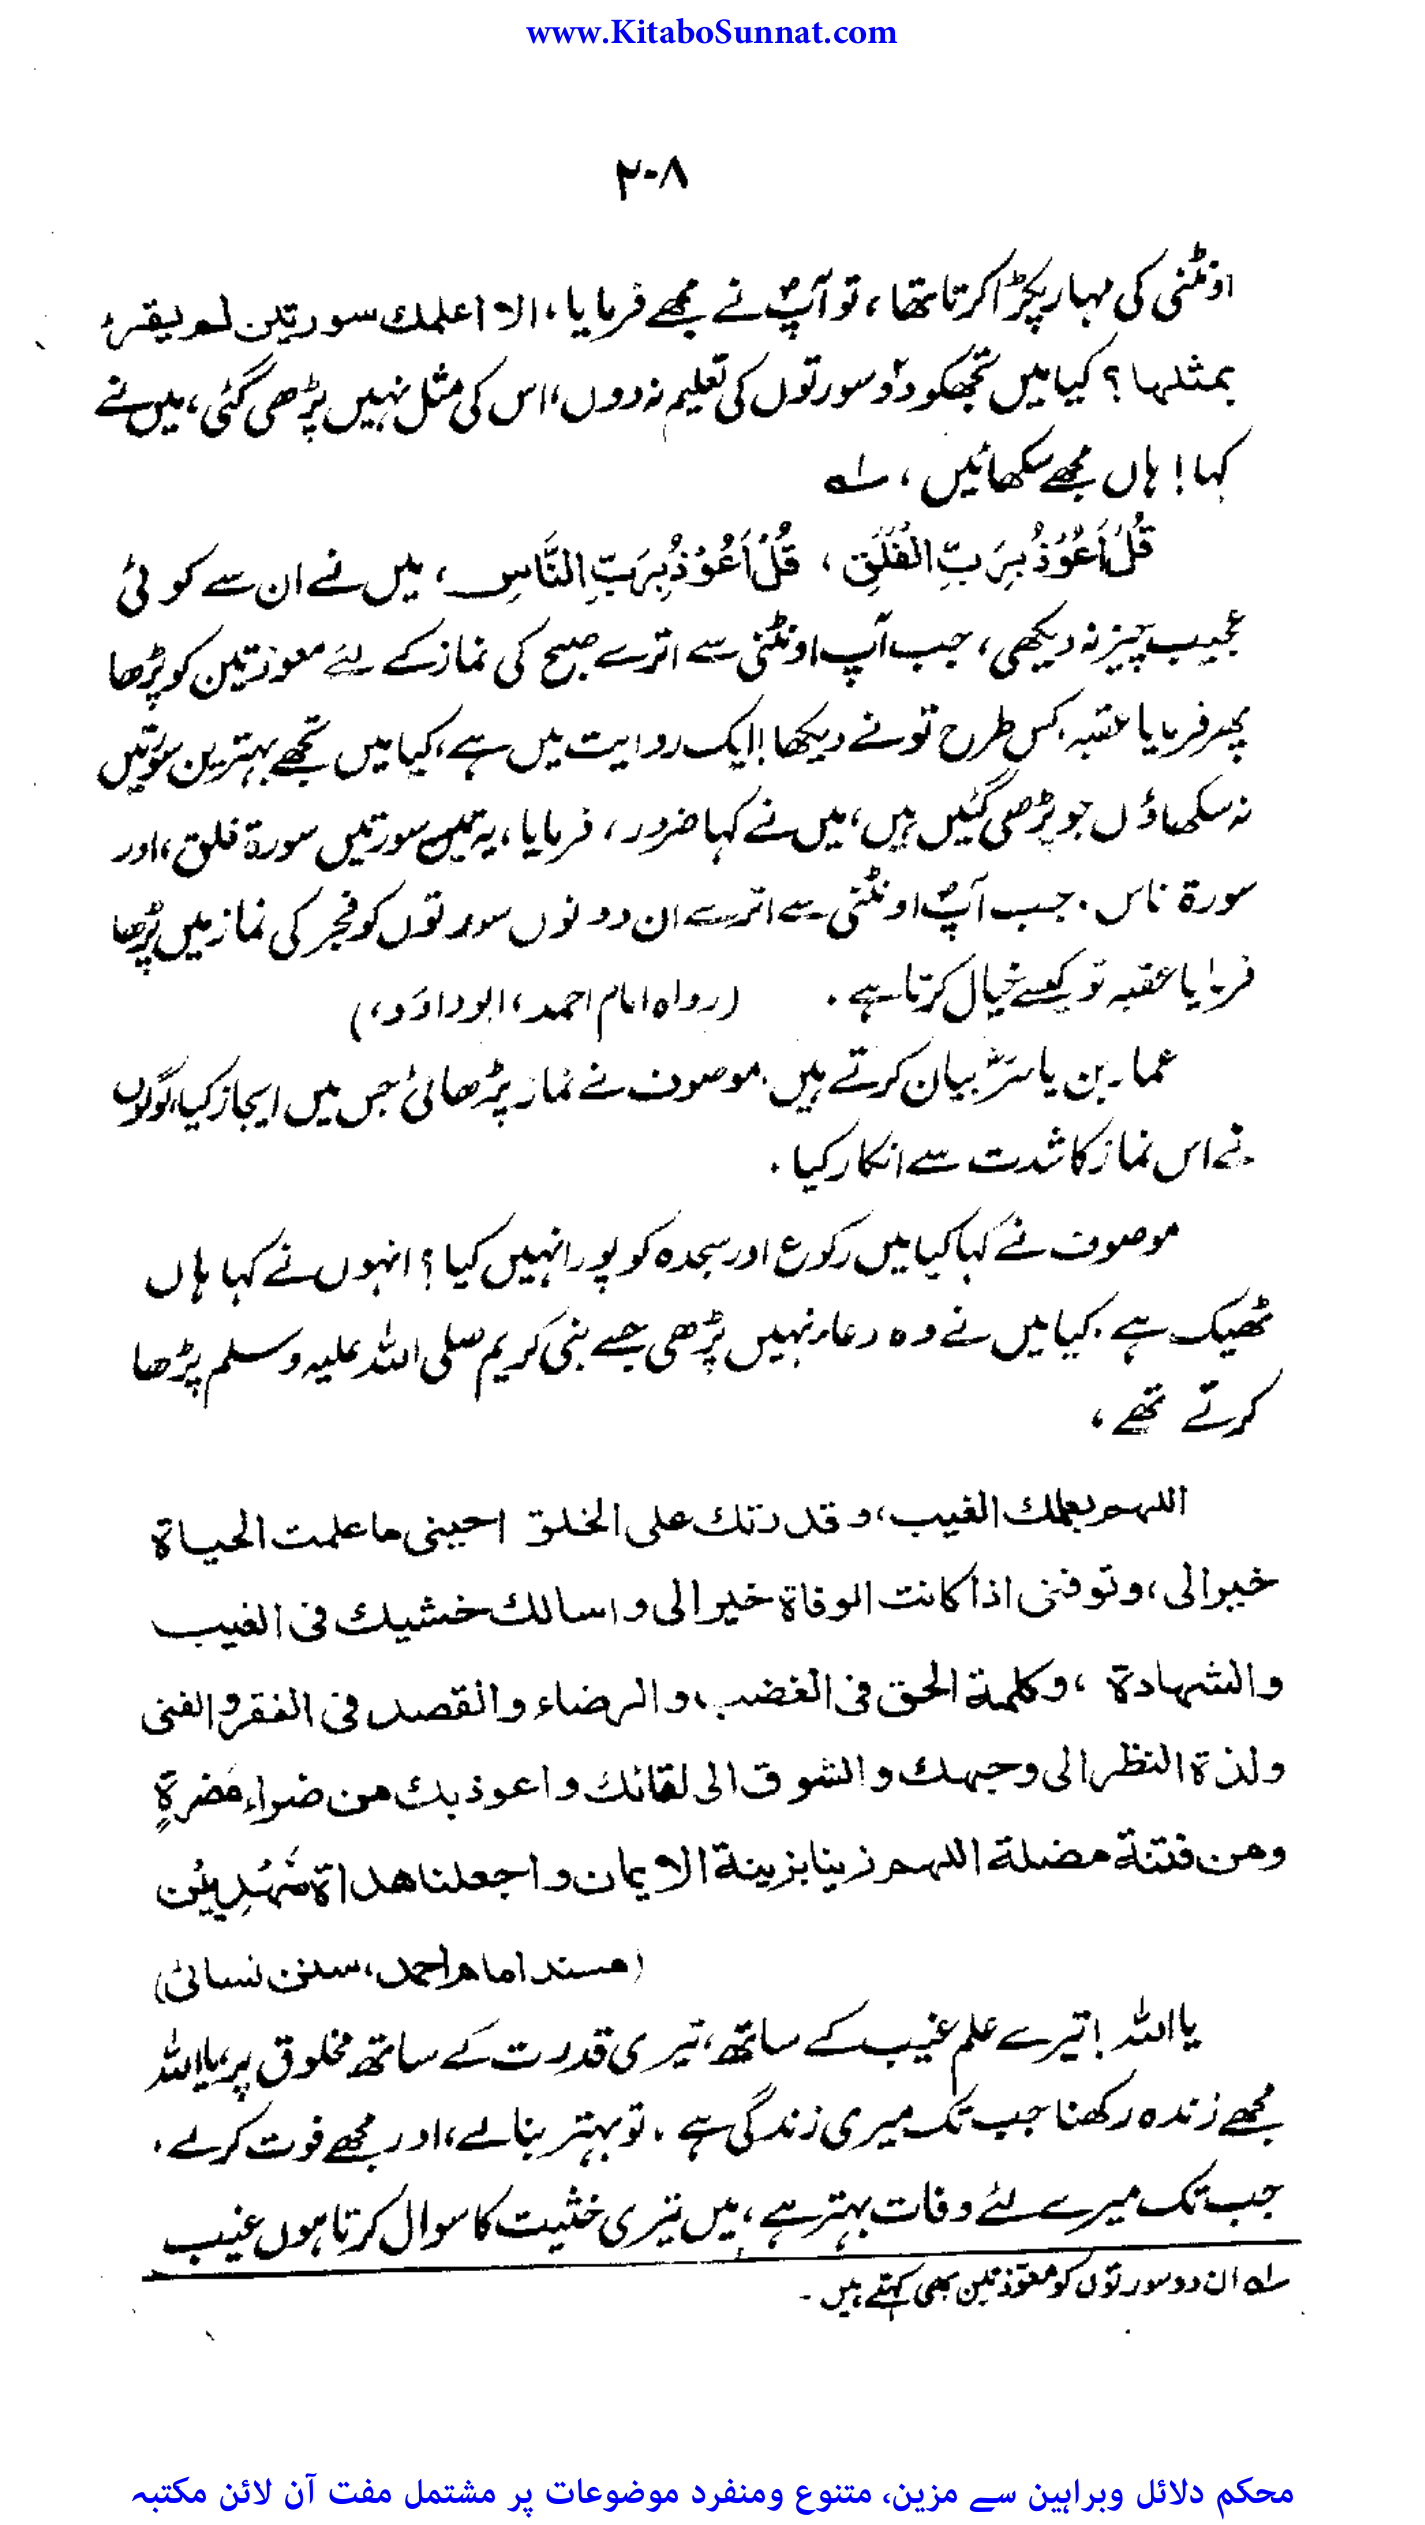 www.KitaboSunnat.com
۲۰۸
اونٹنی کی مہار پکڑا کرتا تھا، تو آپؐ نے مجھے فرمایا، الا اعلمك سورتين لم يقرء
بمثلها؟ کیا میں تجھکو دو سورتوں کی تعلیم نہ دوں، اس کی مثل نہیں پڑھی گئی، میں نے
کہا! ہاں مجھے سکھائیں، ؎۱
قُلْ اَعُوْذُ بِرَبِّ الْفَلَقِ، قُلْ اَعُوْذُ بِرَبِّ النَّاسِ، میں نے ان سے کوئی
عجیب چیز نہ دیکھی، جب آپ اونٹنی سے اترے صبح کی نماز کے لئے معوذتین کو پڑھا
پھر فرمایا عقبہ کس طرح تو نے دیکھا! ایک روایت میں ہے، کیا میں تجھے بہترین سورتیں
نہ سکھاؤں جو پڑھی گئیں ہیں، میں نے کہا ضرور، فرمایا، یہ سورتیں سورۃ فلق، اور
سورۃ ناس۔ جب آپؐ اونٹنی سے اترے ان دونوں سورتوں کو فجر کی نماز میں پڑھا
فرمایا عقبہ تو کیسے خیال کرتا ہے۔ (رواہ امام احمد، ابوداؤد،)
عمار بن یاسرؓ بیان کرتے ہیں۔ موصوف نے نماز پڑھائی جس میں ایجاز کیا، لوگوں
نے اس نماز کا شدت سے انکار کیا۔
موصوف نے کہا کیا میں رکوع اور سجدہ کو پورا نہیں کیا؟ انہوں نے کہا ہاں
ٹھیک ہے۔ کیا میں نے وہ دعاء نہیں پڑھی جسے نبی کریم صلی اللہ علیہ وسلم پڑھا
کرتے تھے،
اللهم بعلمك الغيب، وقدرتك على الخلق احيني ما علمت الحياة
خيرا لي، وتوفني اذا كانت الوفاة خيرا لي واسالك خشيك في الغيب
والشهادة، وكلمة الحق في الغضب، والرضاء والقصد في الفقر والغنى
ولذة النظر الى وجهك والشوق الى لقائك واعوذ بك من ضراء مُضرةٍ
ومن فتنة مضلة اللهم زينا بزينة الايمان واجعلنا هداة مُهْدِيِيْن
(مسند امام احمد، سنن نسائی)
یا اللہ! تیرے علم غیب کے ساتھ، تیری قدرت کے ساتھ مخلوق پر، یا اللہ
مجھے زندہ رکھنا جب تک میری زندگی ہے۔ تو بہتر بنالے، اور مجھے فوت کرلے،
جب تک میرے لئے وفات بہتر ہے، میں تیری خشیت کا سوال کرتا ہوں غیب
؎۱ ان دو سورتوں کو معوّذتین بھی کہتے ہیں۔
محکم دلائل وبراہین سے مزین، متنوع ومنفرد موضوعات پر مشتمل مفت آن لائن مکتبہ